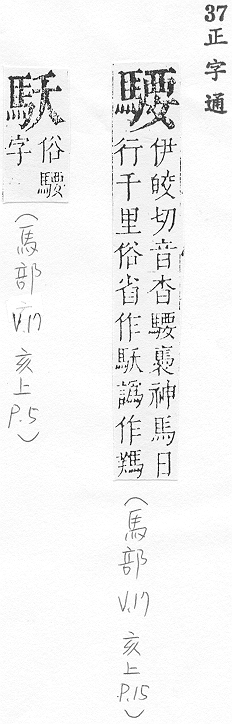 37正字通
騕
伊皎切音杳騕褭神馬日
行千里俗省作譌作
(馬部 V.17 亥上 P.15)
俗騕
字
(馬部 V.17 亥上 P.5)